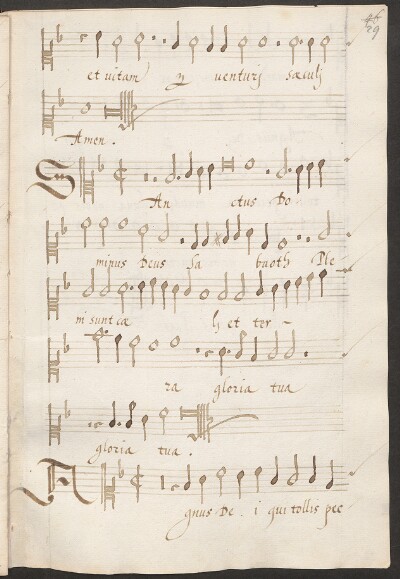 29
et vitam venturj sæculj
Amen .
SAn ctus Do
minus Deus Sa baoth Ple
ni sunt cæ li et ter -
ra gloria tua
gloria tua .
Agnus De . i qui tollis pec